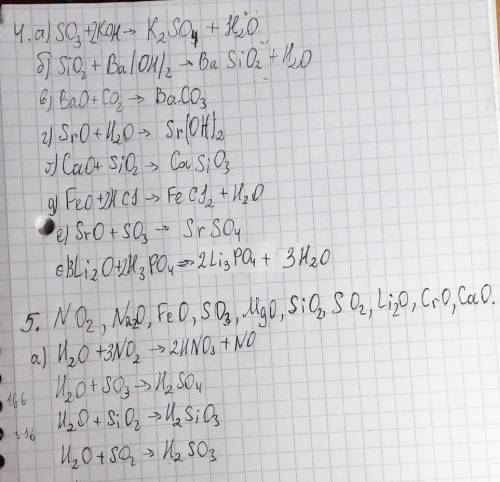 4. а) SO₃+2KOH→ K₂SO₄ + H₂O
б) SiO₂ + Ba(OH)₂ → Ba SiO₂ + H₂O
в) BaO+CO₂ → BaCO₃
г) SrO+H₂O→ Sr(OH)₂
г) CaO+ SiO₂ → CaSiO₃
д) FeO+2HCl → FeCl₂ + H₂O
е) SrO + SO₃ → SrSO₄
ё) 3Li₂O+2H₃PO₄ → 2Li₃PO₄ + 3H₂O
5. NO₂, Na₂O, FeO, SO₃, MgO, SiO₂, SO₂, Li₂O, CrO, CaO.
а) H₂O +3NO₂ → 2HNO₃ + NO
H₂O + SO₃ → H₂SO₄
H₂O + SiO₂ → H₂SiO₃
H₂O + SO₂ → H₂SO₃